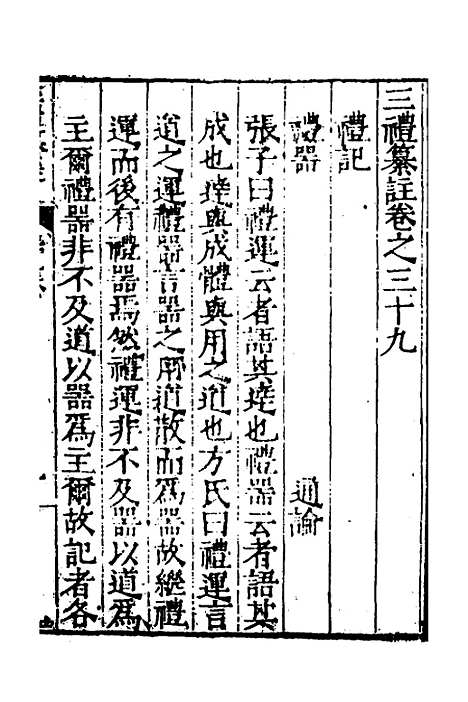 三禮纂註卷之三十九
禮記
禮器　通論
張子曰禮運云者語其達也禮器云者語其
成也達與成體與用之道也方氏曰禮運言
道之運禮器言器之用道散而爲器故繼禮
運而後有禮器焉然禮運非不及器以道爲
主爾禮器非不及道以器爲主爾故記者各